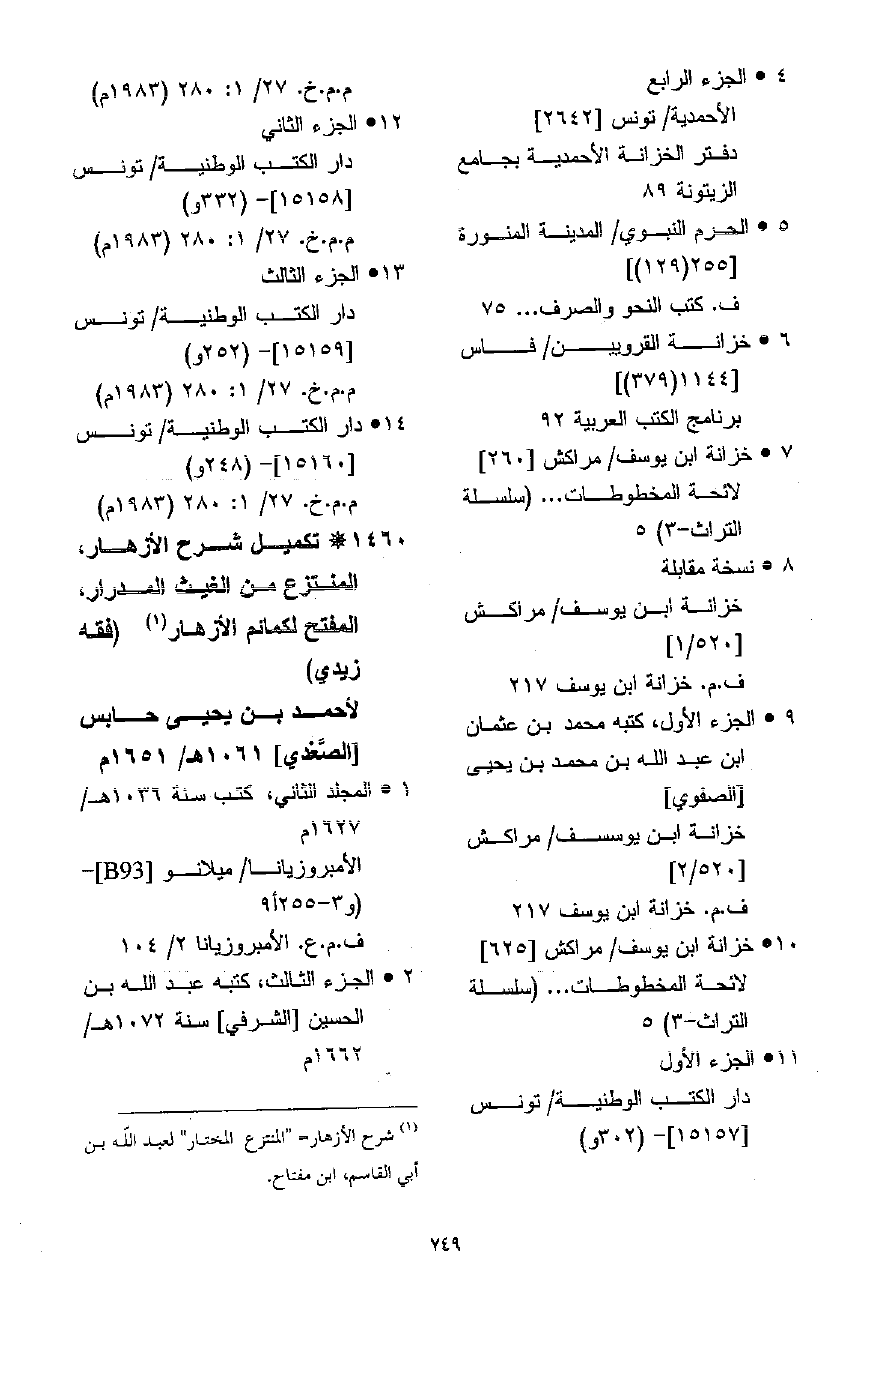 ٤ • الجزء الرابع
الأحمدية/ تونس [٢٦٤٢]
دفتر الخزانة الأحمدية بجامع
الزيتونة ٨٩
٥ • الحرم النبوي/ المدينة المنورة
[٢٥٥(١٢٩)]
ف. كتب النحو والصرف... ٧٥
٦ • خزانة القرويين/ فاس
[١١٤٤(٣٧٩)]
برنامج الكتب العربية ٩٢
٧ • خزانة ابن يوسف/ مراكش [٢٦٠]
لائحة المخطوطات... (سلسلة
التراث-٣) ٥
٨ • نسخة مقابلة
خزانة ابن يوسف/ مراكش
[١/٥٢٠]
ف.م. خزانة ابن يوسف ٢١٧
٩ • الجزء الأول، كتبه محمد بن عثمان
ابن عبد الله بن محمد بن يحيى
[الصفوي]
خزانة ابن يوسف/ مراكش
[٢/٥٢٠]
ف.م. خزانة ابن يوسف ٢١٧
١٠• خزانة ابن يوسف/ مراكش [٦٢٥]
لائحة المخطوطات... (سلسلة
التراث-٣) ٥
١١• الجزء الأول
دار الكتب الوطنية/ تونس
[١٥١٥٧]- (٣٠٢و)
م.م.خ. ٢٧/ ١: ٢٨٠ (١٩٨٣م)
١٢• الجزء الثاني
دار الكتب الوطنية/ تونس
[١٥١٥٨]- (٣٣٢و)
م.م.خ. ٢٧/ ١: ٢٨٠ (١٩٨٣م)
١٣• الجزء الثالث
دار الكتب الوطنية/ تونس
[١٥١٥٩]- (٢٥٢و)
م.م.خ. ٢٧/ ١: ٢٨٠ (١٩٨٣م)
١٤• دار الكتب الوطنية/ تونس
[١٥١٦٠]- (٢٤٨و)
م.م.خ. ٢٧/ ١: ٢٨٠ (١٩٨٣م)
١٤٦٠ * تكميل شرح الأزهار،
المنتزع من الغيث المدرار،
المفتح لكمائم الأزهار(١) (فقه
زيدي)
لأحمد بن يحيى حابس
[الصَّغدي] ١٠٦١هـ/ ١٦٥١م
١ • المجلد الثاني، كتب سنة ١٠٣٦هـ/
١٦٢٧م
الأمبروزيانا/ ميلانو [B93]-
(و٣-٢٥٥أ٩
ف.م.ع. الأمبروزيانا ٢/ ١٠٤
٢ • الجزء الثالث، كتبه عبد الله بن
الحسين [الشرفي] سنة ١٠٧٢هـ/
١٦٦٢م
(١) شرح الأزهار= "المنتزع المختار" لعبد الله بن
أبي القاسم، ابن مفتاح.
٧٤٩